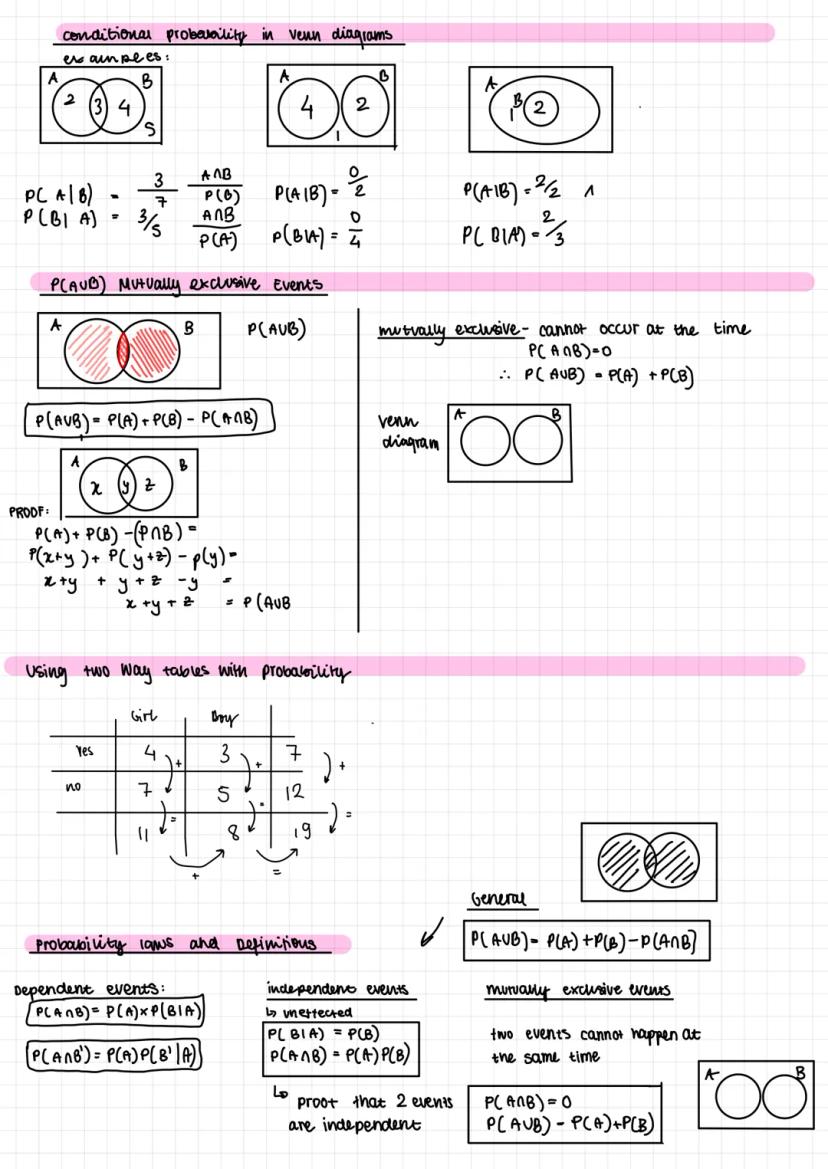 conditional probability in venn diagrams
examples:
A B
2 3 4
S
A B
4 2
1
A
B
1 2
P(A|B) = 3/7 A∩B/P(B)
P(B|A) = 3/5 A∩B/P(A)
P(A|B) = 0/2
P(B|A) = 0/4
P(A|B) = 2/2 1
P(B|A) = 2/3
P(AUB) Mutually exclusive Events
A B P(AUB)
P(AUB) = P(A) + P(B) - P(A∩B)
A B
x y z
PROOF:
P(A) + P(B) - (P∩B) =
P(x+y) + P(y+z) - p(y) =
x+y + y+z -y =
x+y+z = P(AUB
mutually exclusive - cannot occur at the time
P(A∩B)=0
∴ P(AUB) = P(A) + P(B)
venn
diagram
A B
Using two way tables with probability
Girl Boy
Yes 4 + 3 + 7 +
no 7 5 12
= = =
11 8 19
+ =
General
P(AUB) = P(A) + P(B) - P(A∩B)
Probability laws and Definitions
Dependent events:
P(A∩B) = P(A)×P(B|A)
P(A∩B') = P(A)P(B'|A)
independent events
↳ uneffected
P(B|A) = P(B)
P(A∩B) = P(A)P(B)
↳ proof that 2 events
are independent
mutually exclusive events
two events cannot happen at
the same time
P(A∩B) = 0
P(AUB) - P(A)+P(B)
A B